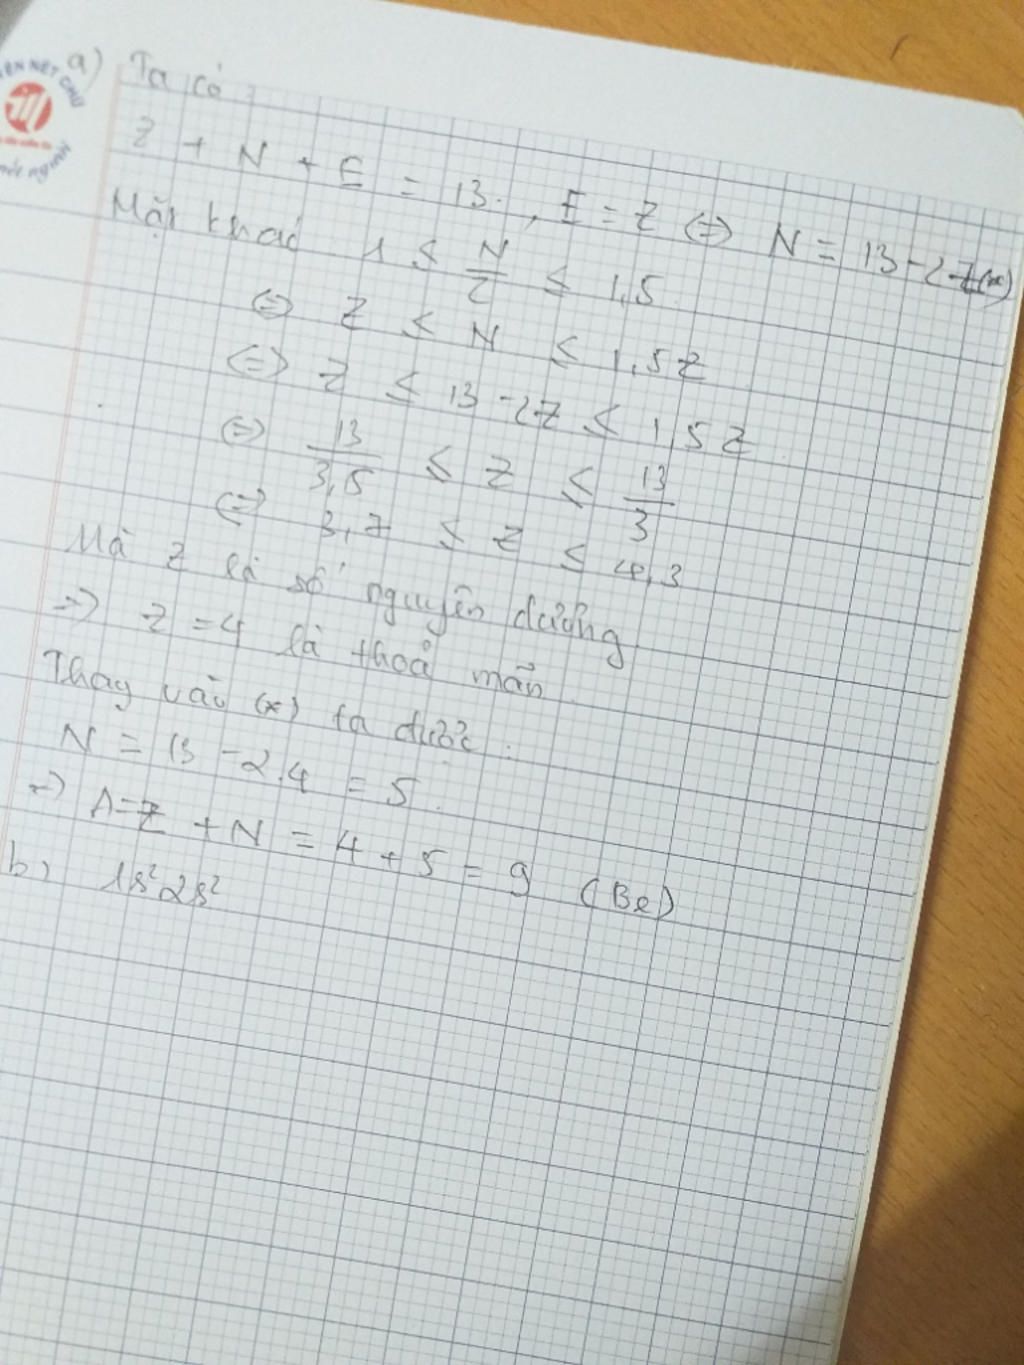 a) Ta có:
Z + N + E = 13. , E = Z <=> N = 13 - 2Z (*)
Mặt khác 1 ≤ N/Z ≤ 1,5
<=> Z ≤ N ≤ 1,5Z
<=> Z ≤ 13 - 2Z ≤ 1,5Z
<=> 13/3,5 ≤ Z ≤ 13/3
<=> 3,7 ≤ Z ≤ 4,3
Mà Z là số nguyên dương
=> Z = 4 là thoả mãn
Thay vào (*) ta được:
N = 13 - 2.4 = 5.
=> A = Z + N = 4 + 5 = 9 (Be)
b) 1s² 2s²